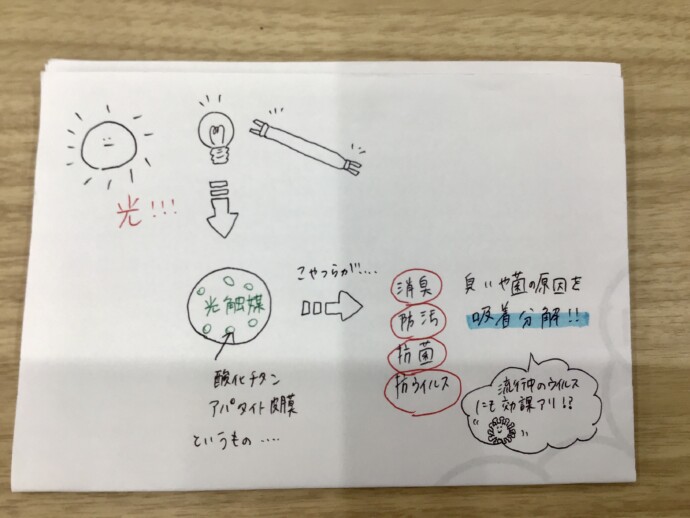 光!!!
光触媒
酸化チタン
アパタイト皮膜
というもの....
こやつらが....
消臭
防汚
抗菌
抗ウイルス
臭いや菌の原因を
吸着分解!!
流行中のウイルス
にも効課アリ!?